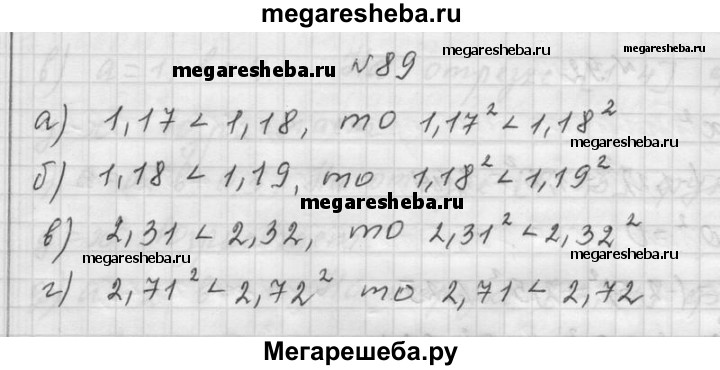 megaresheba.ru
megaresheba.ru
megaresheba.ru
№89
а) 1,17 < 1,18, то 1,17² < 1,18²
megaresheba.ru
б) 1,18 < 1,19, то 1,18² < 1,19²
megaresheba.ru
в) 2,31 < 2,32, то 2,31² < 2,32²
megaresheba.ru
megaresheba.ru
г) 2,71² < 2,72² то 2,71 < 2,72
Мегарешеба.ру